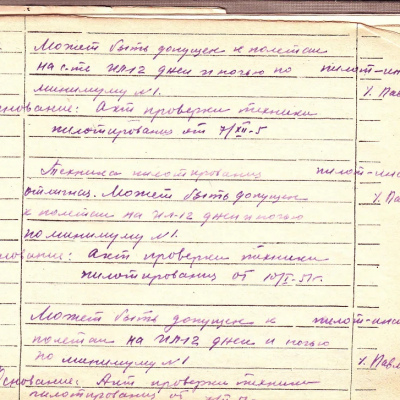 Может быть допущен к полетам пилот-ин
на с-те ИЛ-12 днем и ночью по У. Пав
минимуму №1.
снование: Акт проверки техники
пилотирования от 7/XII-5
Техника пилотирования пилот-инс
отличная. Может быть допущен У. Па
к полетам на ИЛ-12 днем и ночью
по минимуму №1.
нование: Акт проверки техники
пилотирования от 10/I-51г.
Может быть допущен к пилот-инс
полетам на ИЛ-12, днем и ночью
по минимуму №1 У. Павл
Основание: Акт проверки техники
пилотирования от